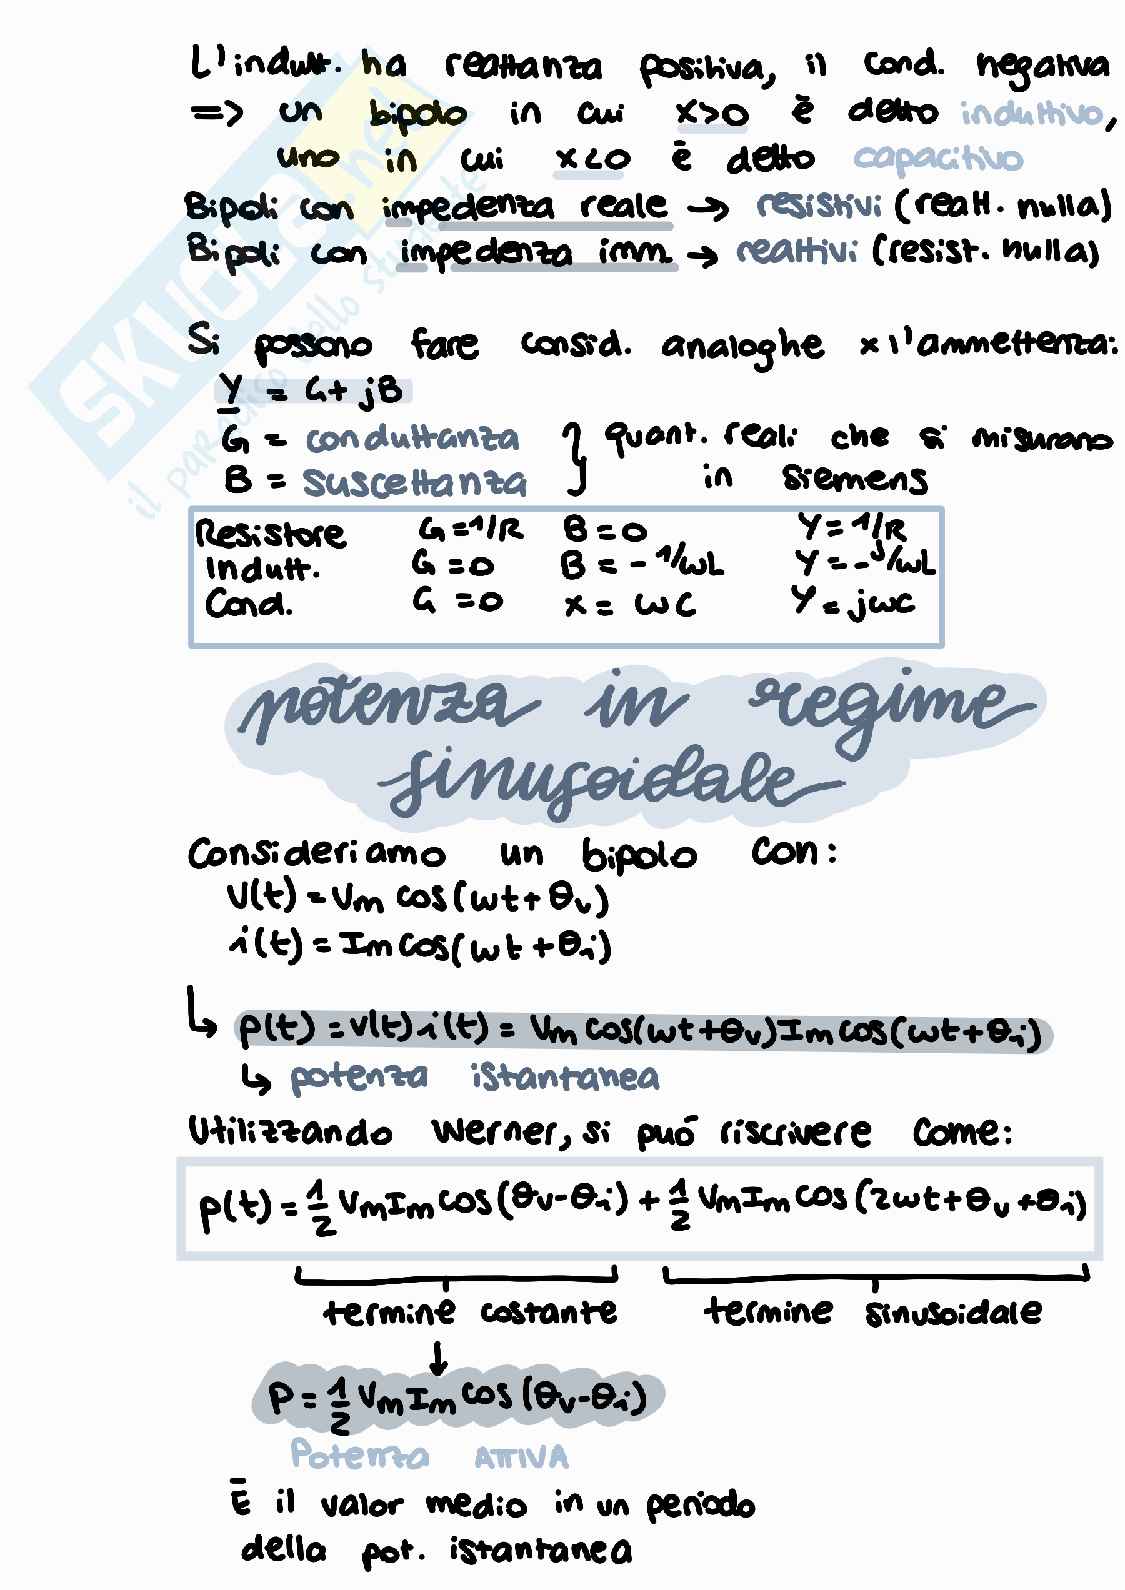 L'indutt. ha reattanza positiva, il cond. negativa
=> un bipolo in cui x>0 è detto induttivo,
uno in cui x<0 è detto capacitivo
Bipoli con impedenza reale → resistivi (reatt. nulla)
Bipoli con impedenza imm. → reattivi (resist. nulla)
Si possono fare consid. analoghe x l'ammettenza:
Y = G + jB
G = conduttanza } quant. reali che si misurano
B = suscettanza in siemens
Resistore G=1/R B=0 Y=1/R
Indutt. G=0 B=-1/ωL Y=-J/ωL
Cond. G=0 x=ωC Y=jωc
potenza in regime
sinusoidale
Consideriamo un bipolo con:
V(t) = Vm cos(ωt+θv)
i(t) = Im cos(ωt+θi)
↳ p(t) = v(t).i(t) = Vm cos(ωt+θv) Im cos(ωt+θi)
↳ potenza istantanea
Utilizzando Werner, si può riscrivere come:
p(t) = 1/2 VmIm cos(θv-θi) + 1/2 VmIm cos(2ωt+θv+θi)
termine costante termine sinusoidale
↓
P = 1/2 VmIm cos(θv-θi)
Potenza ATTIVA
È il valor medio in un periodo
della pot. istantanea
SKUOLA.net
il paradiso dello studente